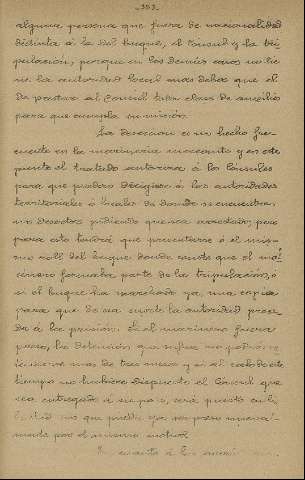 -353-
alguna persona que fuera de nacionalidad
distinta á la del buque, el Consul y la tri-
pulacion, porque en los demás casos no tie-
ne la autoridad local mas deber que el
de prestar al Consul toda clase de auxilio
para que cumpla su mision.
La desercion es un hecho fre-
cuente en la marineria mercante y en este
punto el tratado autoriza á los Cónsules
para que puedan dirigirse á las autoridades
territoriales ó locales de donde se encuentren
los desertores pidiendo que sea arrestado, pero
para esto tendrá que presentarse ó el mis-
mo roll del buque donde conste que el ma-
rinero formaba parte de la tripulación, ó
si el buque ha marchado ya, una copia
para que de sea suerte la autoridad proce-
da á la prisión. Si el marinero fuera
preso, la detención que sufra no podrá
mas de tres meses y si al cabo de este
tiempo no hubiera dispuesto el Consul que
sea entregado á su pais, será puesto en li-
bertad sin que pueda ya ser preso nueva-
mente por el mismo motivo.
En cuanto á los